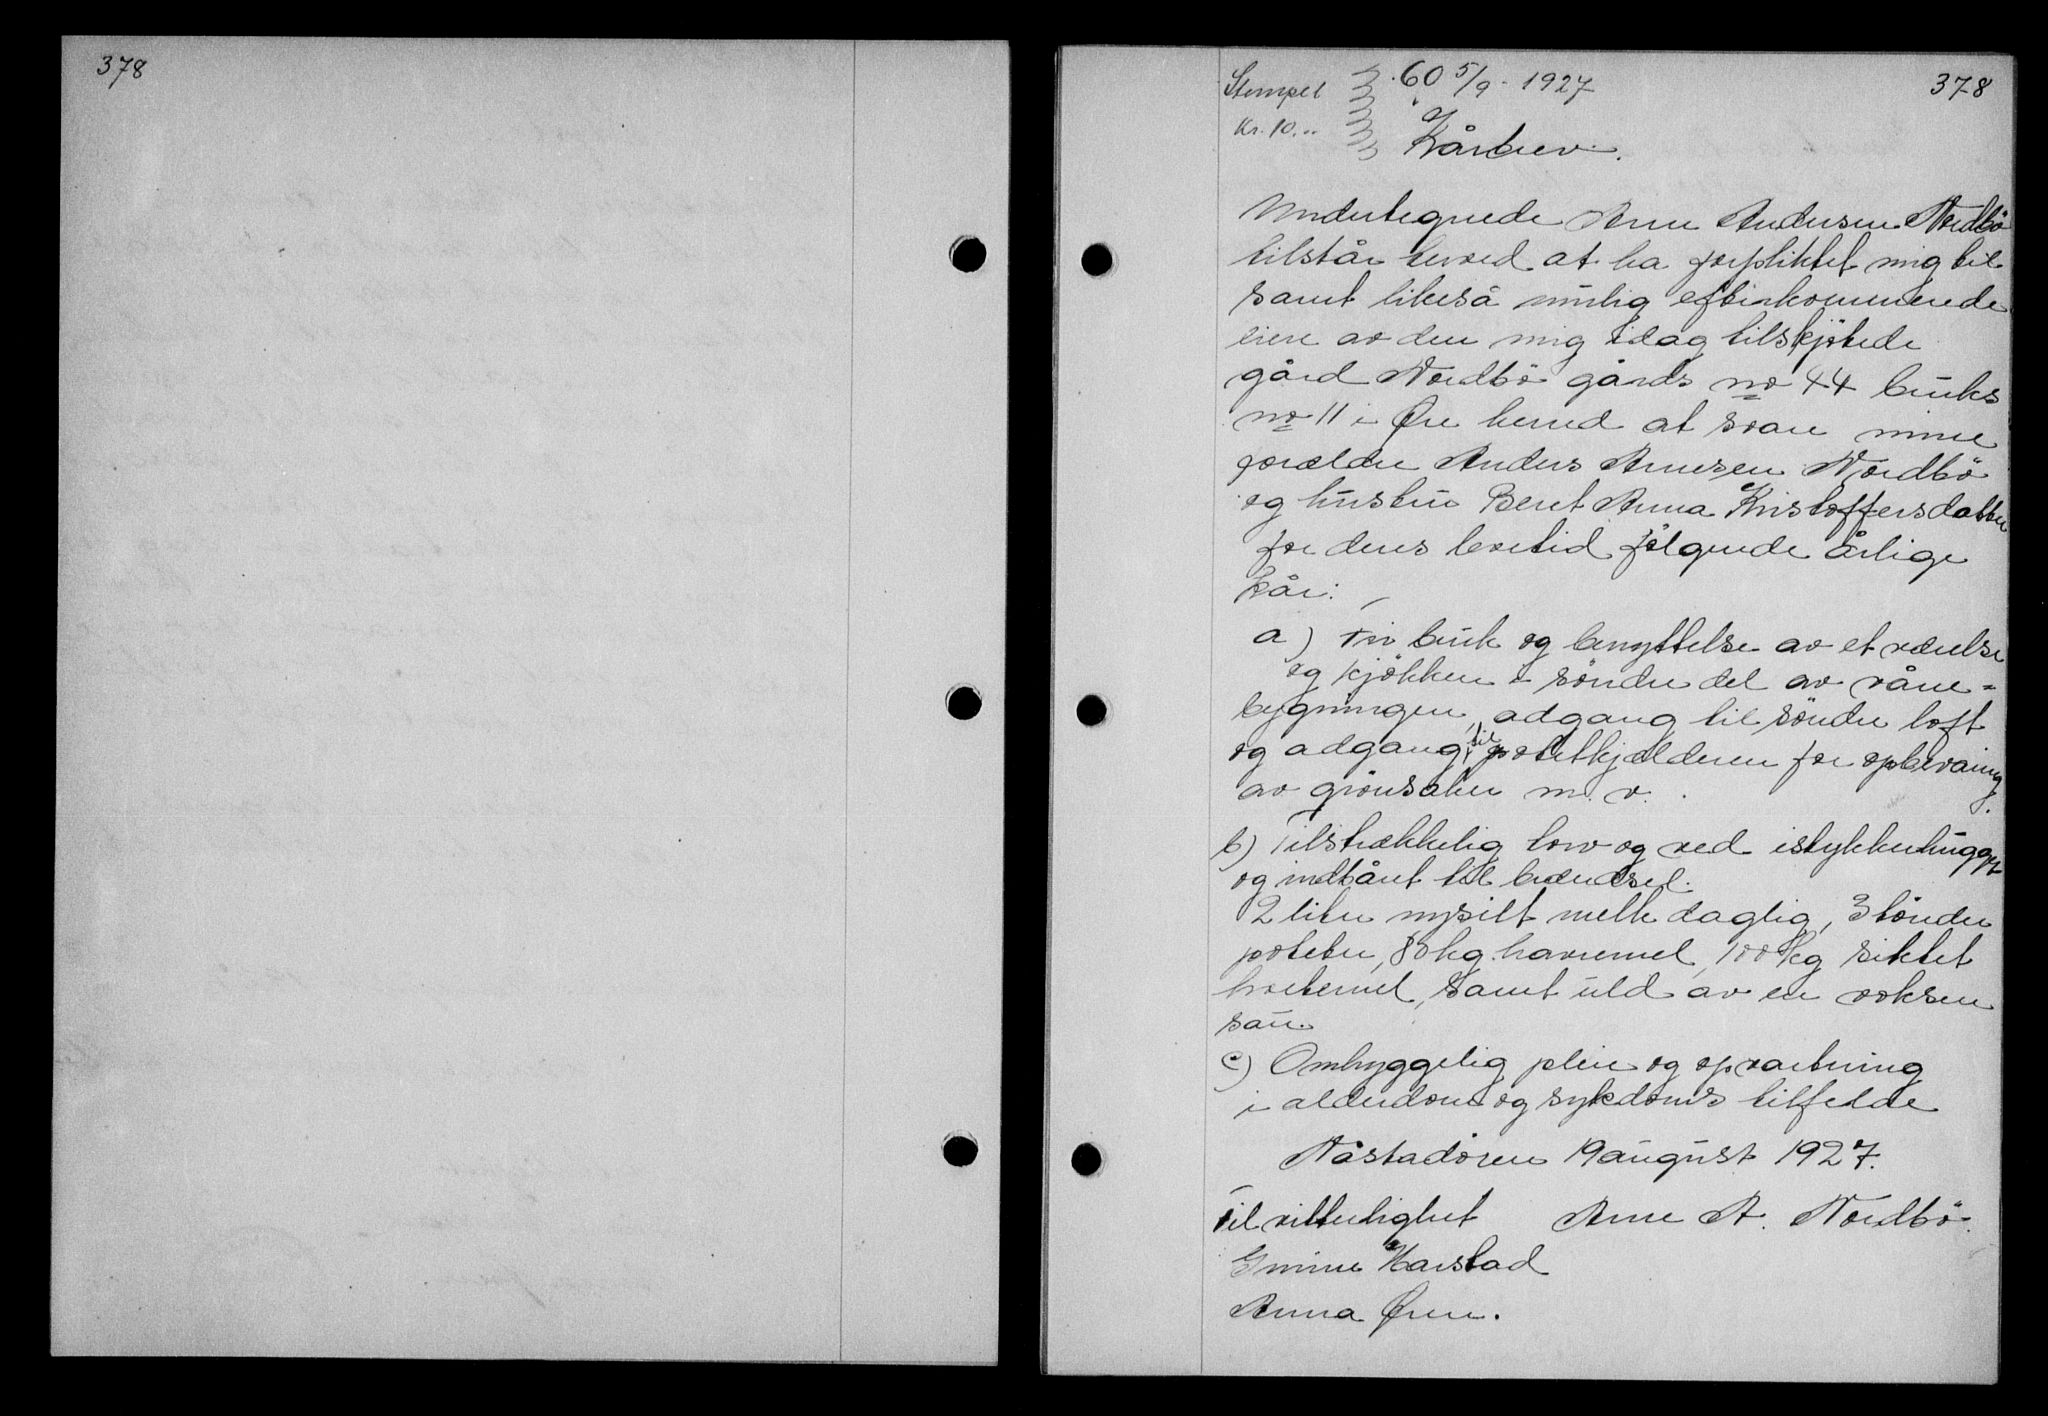 378
378
Stempel
Kr. 10.-
60 5/9 - 1927
Kårbrev.
Undertegnede Arne Andersen Nordbö
tilstår herved at ha forpliktet mig til
samt likeså mulig efterkommende
eiere av den mig idag tilskjötede
gård Nordbö gårds no 44 bruks
no 11 i Øre herred at svare mine
forældre Anders Arnesen Nordbö
og hustru Beret Anna Kristoffersdatter
for deres levetid følgende årlige
kår:
a) Fri bruk og benyttelse av et værelse
og kjökken i söndre del av våne-
bygningen, adgang til söndre loft
og adgang til potetkjelderen for opbevaring
av grönsaker m. v.
b) Tilstrækkelig torv og ved istykkerhugget
og indbåret til brændsel.
2 liter nysilt melk daglig, 3 tönder
poteter, 80 kg. havremel, 100 kg siktet
hvetemel, samt uld av en voksen
sau.
c) Omhyggelig pleie og opvartning
i alderdoms og sykdoms tilfelde
Nåstadören 19 august 1927.
Til vitterlighet Arne A. Nordbö.
Harstad
Anna Øren.